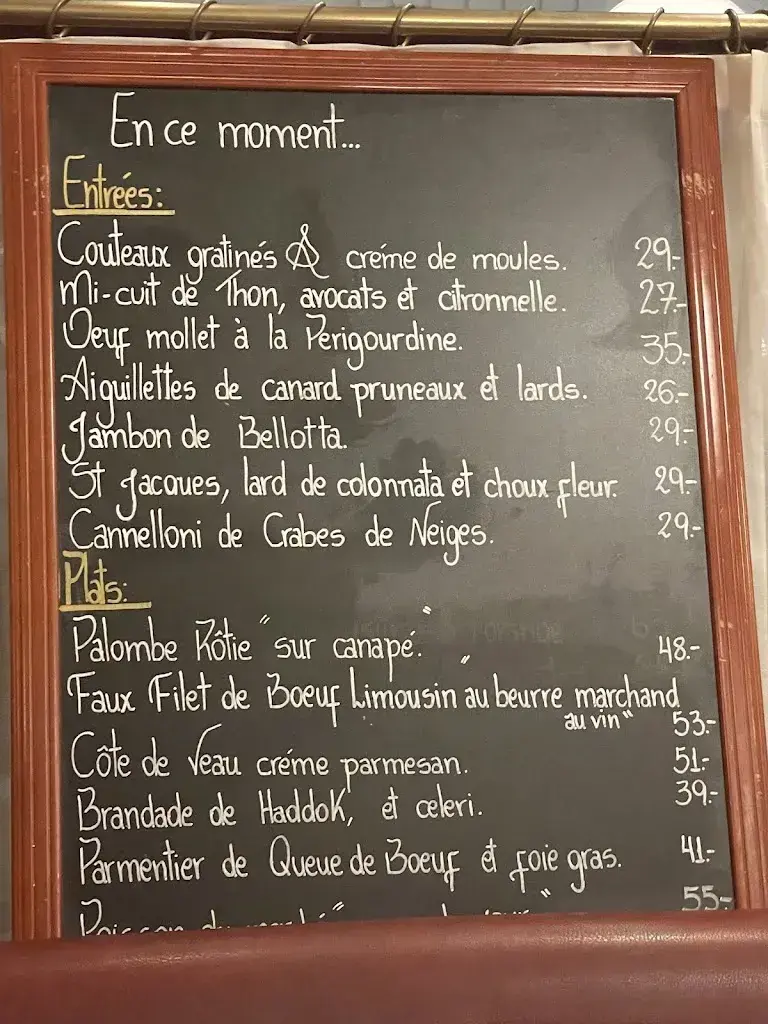 En ce moment...
Entrées:
Couteaux gratinés & créme de moules. 29.-
Mi-cuit de Thon, avocats et citronnelle. 27.-
Oeuf mollet à la Périgourdine. 35.-
Aiguillettes de canard pruneaux et lards. 26.-
Jambon de Bellotta. 29.-
St Jacques, lard de colonnata et choux fleur. 29.-
Cannelloni de Crabes de Neiges. 29.-
Plats:
Palombe Rôtie "sur canapé." 48.-
Faux Filet de Boeuf Limousin "au beurre marchand
au vin" 53.-
Côte de Veau créme parmesan. 51.-
Brandade de Haddok, et celeri. 39.-
Parmentier de Queue de Boeuf et foie gras. 41.-
Poisson du 55.-